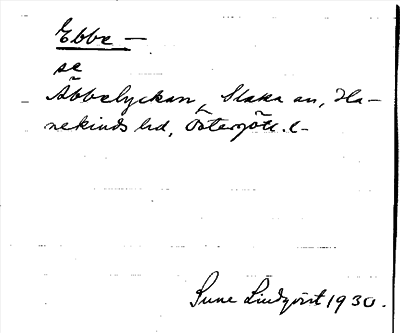 Ebbe —
se
Äbbelyckan, Slaka sn, Ha-
nekinds hd, Östergötl. l-
Sune Lindqvist 1930.